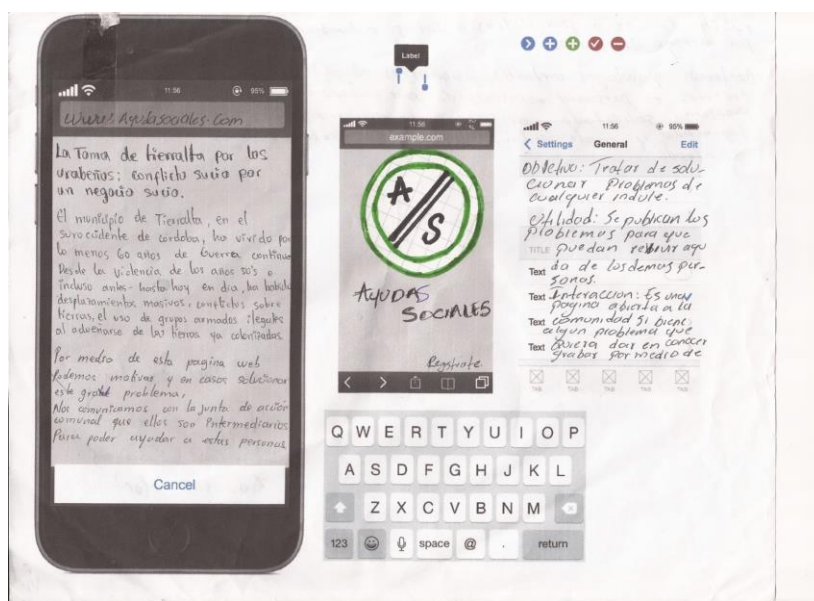 11:56
95%
www.Ayudasociales.com
La Toma de tierralta por los
urabeños: conflicto sucio por
un negocio sucio.
El municipio de Tierralta, en el
suroccidente de córdoba, ha vivido por
lo menos 60 años de Guerra continua
Desde la violencia de los años 50's e
incluso antes- hasta hoy en dia, ha habido
desplazamientos masivos, conflictos sobre
tierras, el uso de grupos armados ilegales
al adueñarse de las tierras ya colonizadas
Por medio de esta pagina web
Podemos motivar y en casos solucionar
este grave problema,
Nos comunicamos con la junta de acción
comunal que ellos son intermediarios
Para poder ayudar a estas personas
Cancel
Label
example.com
A
S
AYUDAS
SOCIALES
Registrate
11:56
95%
Settings
General
Edit
Objetivo: Tratar de solu-
cionar Problemas de
cualquier indole.
Utilidad: Se publican los
problemas para que
TITLE
puedan recibir ayu
Text
da de los demas per-
sonas.
Text
Interaccion: Es una
pagina abierta a la
Text
comunidad si tiene
algun problema que
Text
Quiera dar en conocer
grabar por medio de
TAB
TAB
TAB
TAB
TAB
Q W E R T Y U I O P
A S D F G H J K L
Z X C V B N M
123
space
@
.
return